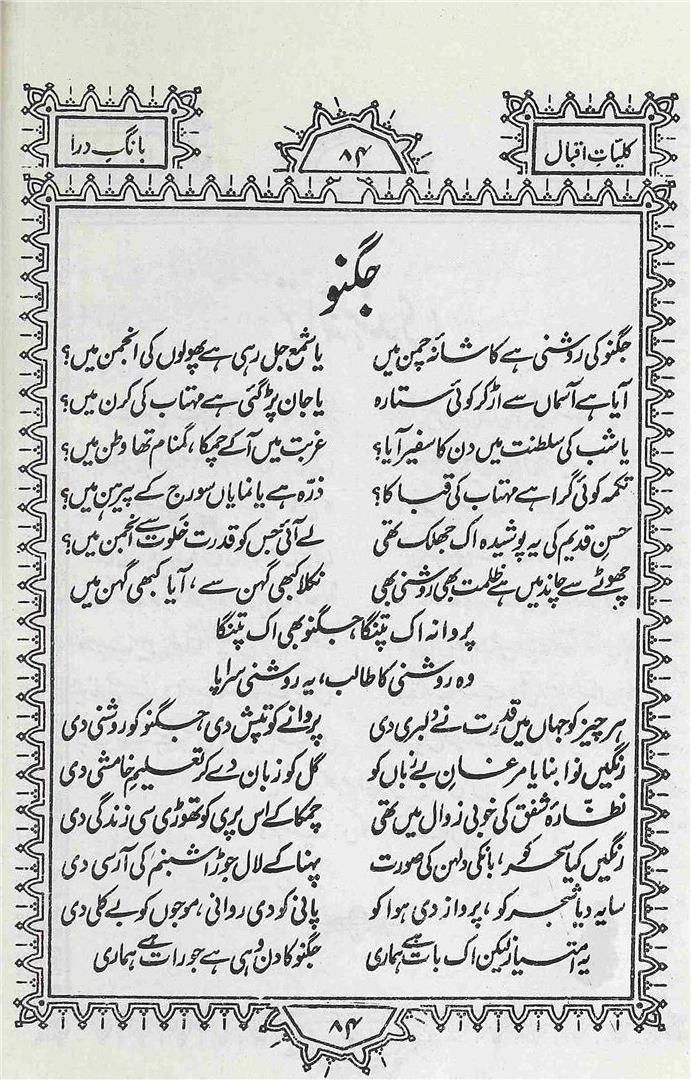 کلیّاتِ اقبال
۸۴
بانگِ درا
جگنو
جگنو کی روشنی ہے کاشانۂ چمن میں یا شمع جل رہی ہے پھولوں کی انجمن میں؟
آیا ہے آسماں سے اڑ کر کوئی ستارہ یا جان پڑ گئی ہے مہتاب کی کرن میں؟
یا شب کی سلطنت میں دن کا سفیر آیا؟ غربت میں آ کے چمکا، گمنام تھا وطن میں؟
تکمہ کوئی گرا ہے مہتاب کی قبا کا؟ ذرّہ ہے یا نمایاں سورج کے پیرہن میں؟
حسنِ قدیم کی یہ پوشیدہ اک جھلک تھی لے آئی جس کو قدرت خلوت سے انجمن میں؟
چھوٹے سے چاند میں ہے ظلمت بھی روشنی بھی نکلا کبھی گہن سے، آیا کبھی گہن میں
پروانہ اک پتنگا، جگنو بھی اک پتنگا
وہ روشنی کا طالب، یہ روشنی سراپا
ہر چیز کو جہاں میں قدرت نے دلبری دی پروانے کو تپش دی، جگنو کو روشنی دی
رنگیں نوا بنایا مرغانِ بے زباں کو گل کو زبان دے کر تعلیمِ خامشی دی
نظّارۂ شفق کی خوبی زوال میں تھی چمکا کے اس پری کو تھوڑی سی زندگی دی
رنگیں کیا سحر کو، بانکی دلھن کی صورت پہنا کے لال جوڑا شبنم کی آرسی دی
سایہ دیا شجر کو، پرواز دی ہوا کو پانی کو دی روانی، موجوں کو بے کلی دی
یہ امتیاز لیکن اک بات ہے ہماری جگنو کا دن وہی ہے جو رات ہے ہماری
۸۴